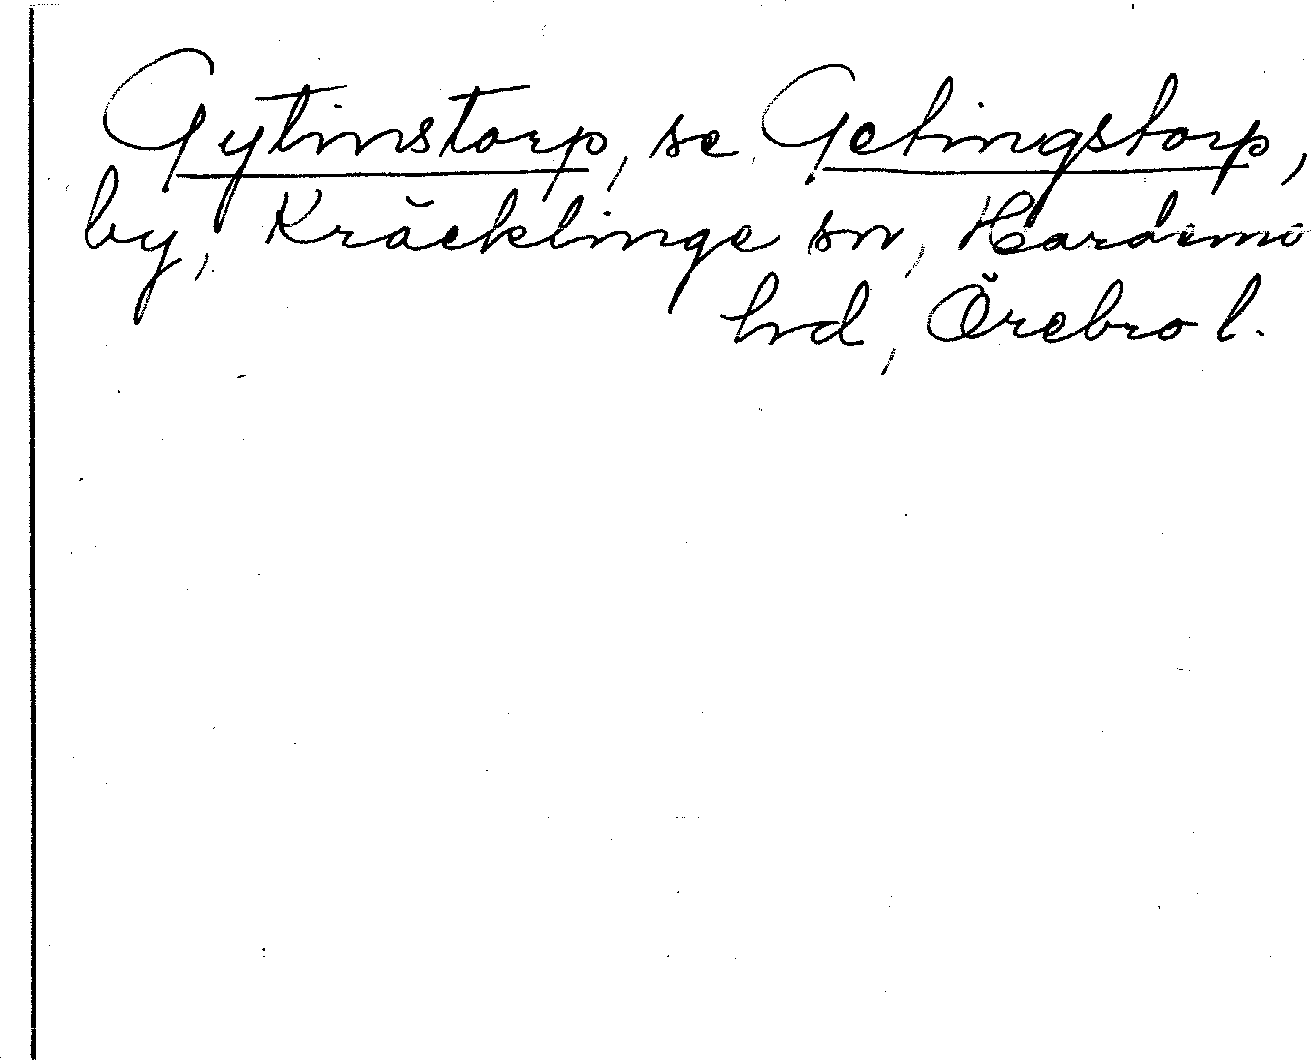 Gytinstorp, se Getingstorp,
by, Kräcklinge sn, Hardemo
hd, Örebro l.